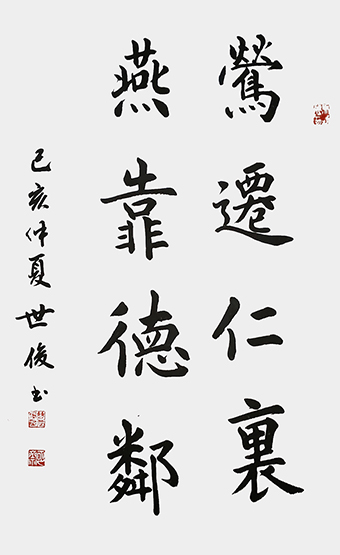 鶯遷仁裏
燕靠德鄰
己亥仲夏世俊书